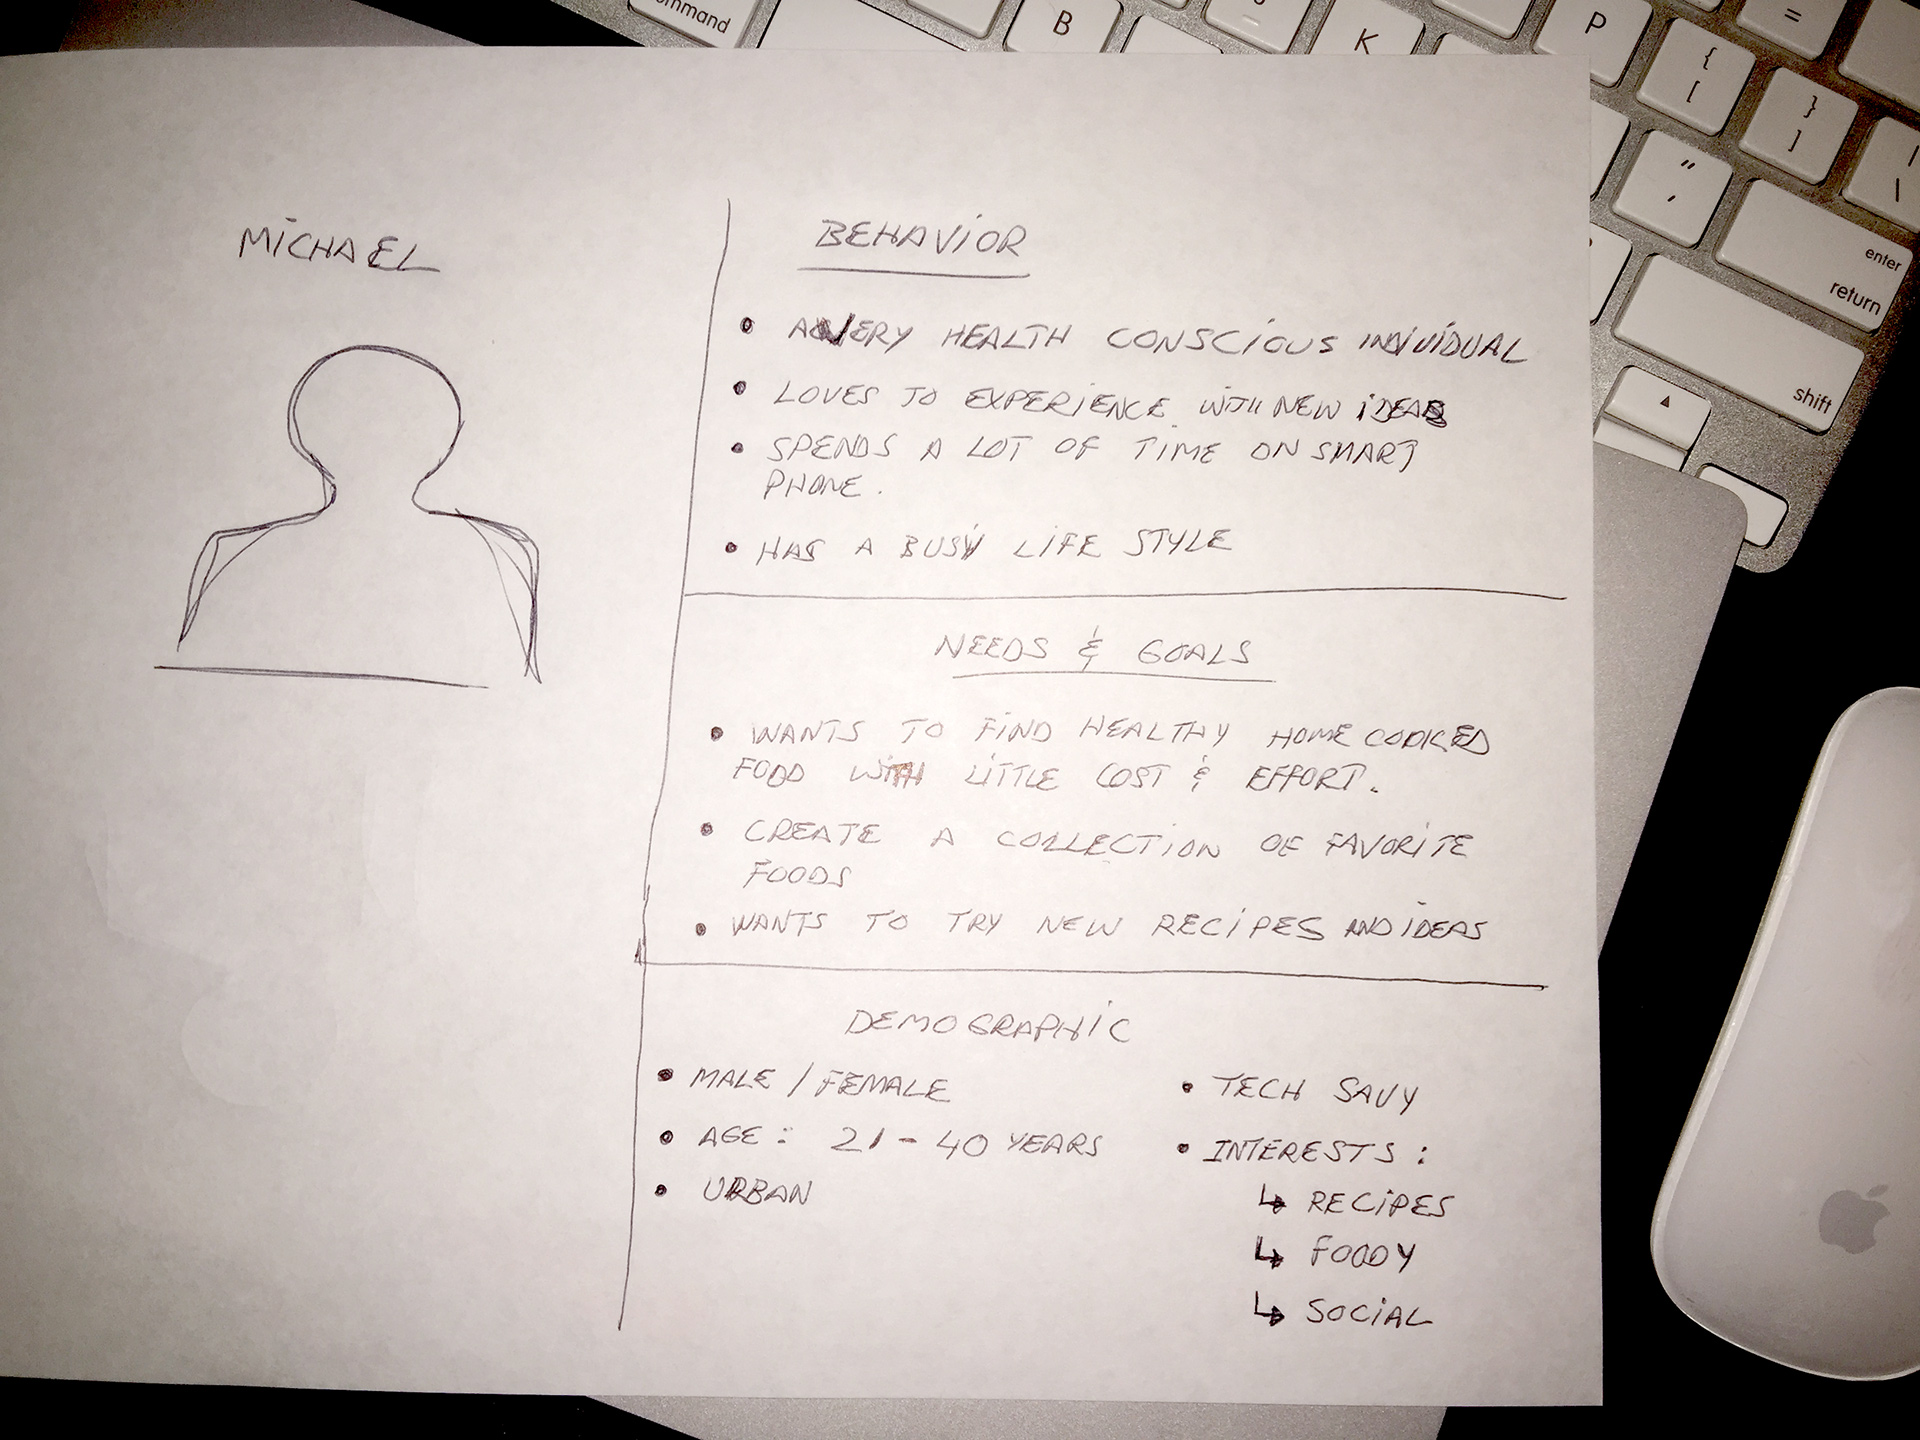 MICHAEL
BEHAVIOR
• A VERY HEALTH CONSCIOUS INDIVIDUAL
• LOVES TO EXPERIENCE WITH NEW IDEAS
• SPENDS A LOT OF TIME ON SMART
PHONE.
• HAS A BUSY LIFE STYLE
NEEDS & GOALS
• WANTS TO FIND HEALTHY HOME COOKED
FOOD WITH LITTLE COST & EFFORT.
• CREATE A COLLECTION OF FAVORITE
FOODS
• WANTS TO TRY NEW RECIPES AND IDEAS
DEMOGRAPHIC
• MALE / FEMALE
• AGE: 21 - 40 YEARS
• URBAN
• TECH SAVY
• INTERESTS:
↳ RECIPES
↳ FOODY
↳ SOCIAL
command
B
K
P
{
[
}
]
=
|
\
"
'
enter
return
shift
▲